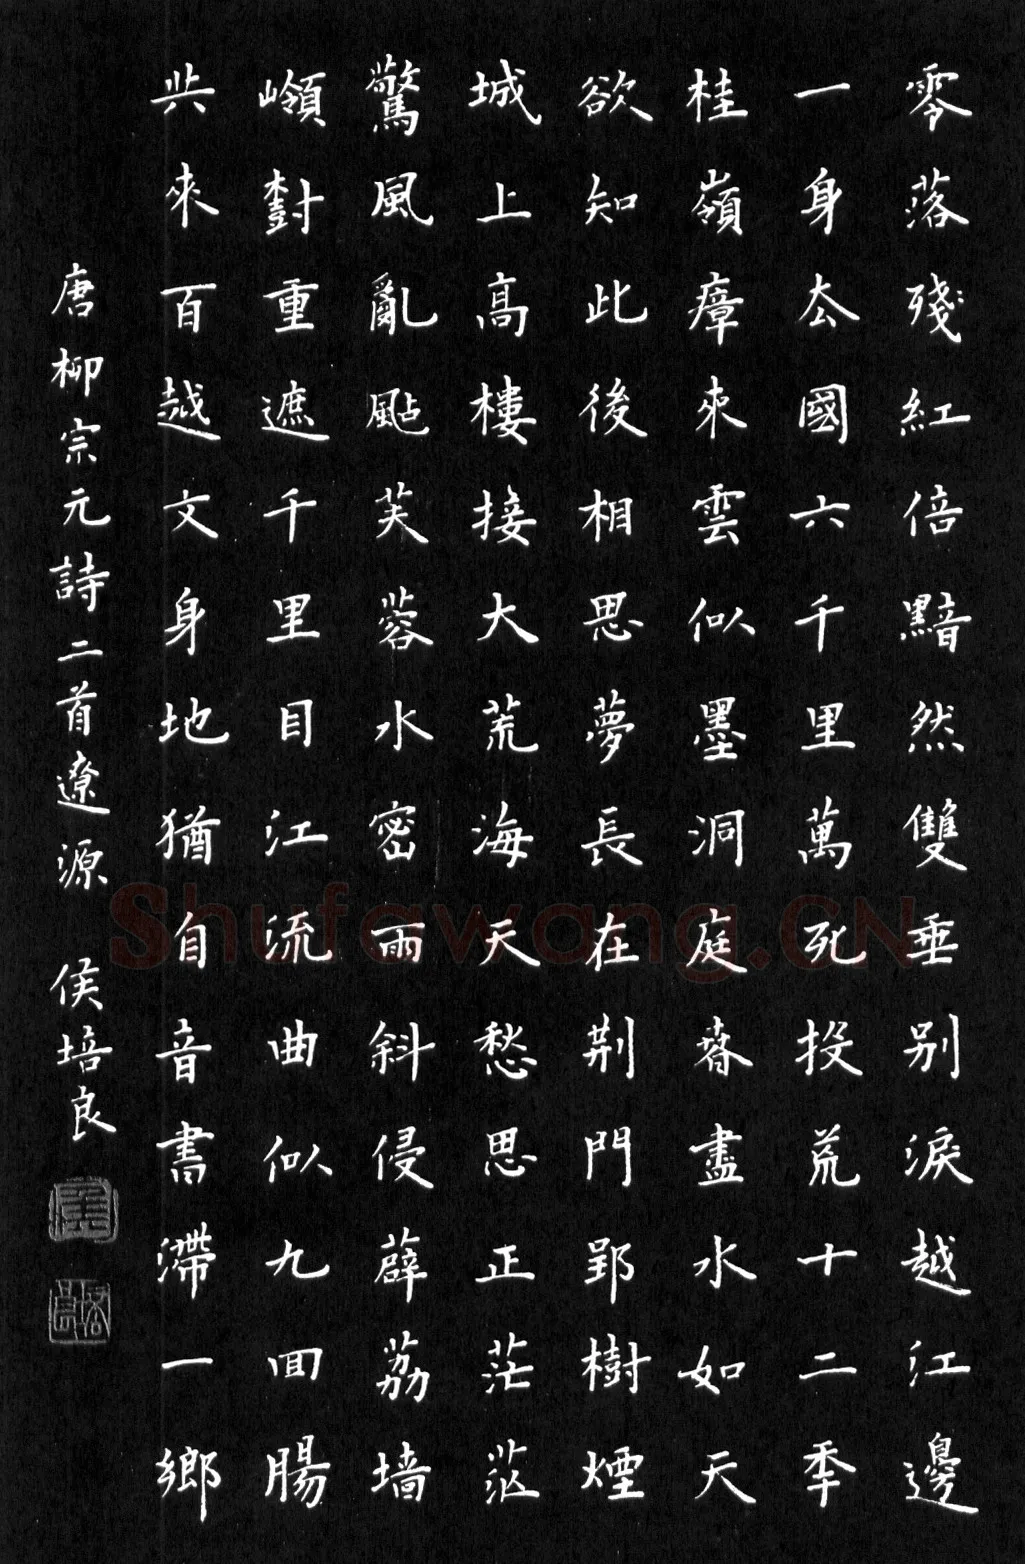 零落殘紅倍黯然雙垂別淚越江邊
一身去國六千里萬死投荒十二季
桂嶺瘴來雲似墨洞庭春盡水如天
欲知此後相思夢長在荆門郢樹煙
城上高樓接大荒海天愁思正茫茫
驚風亂颭芙蓉水密雨斜侵薜荔墙
嶺對重遮千里目江流曲似九回腸
共來百越文身地猶自音書滯一鄉
唐柳宗元詩二首遼源 侯培良
Shufawang.CN